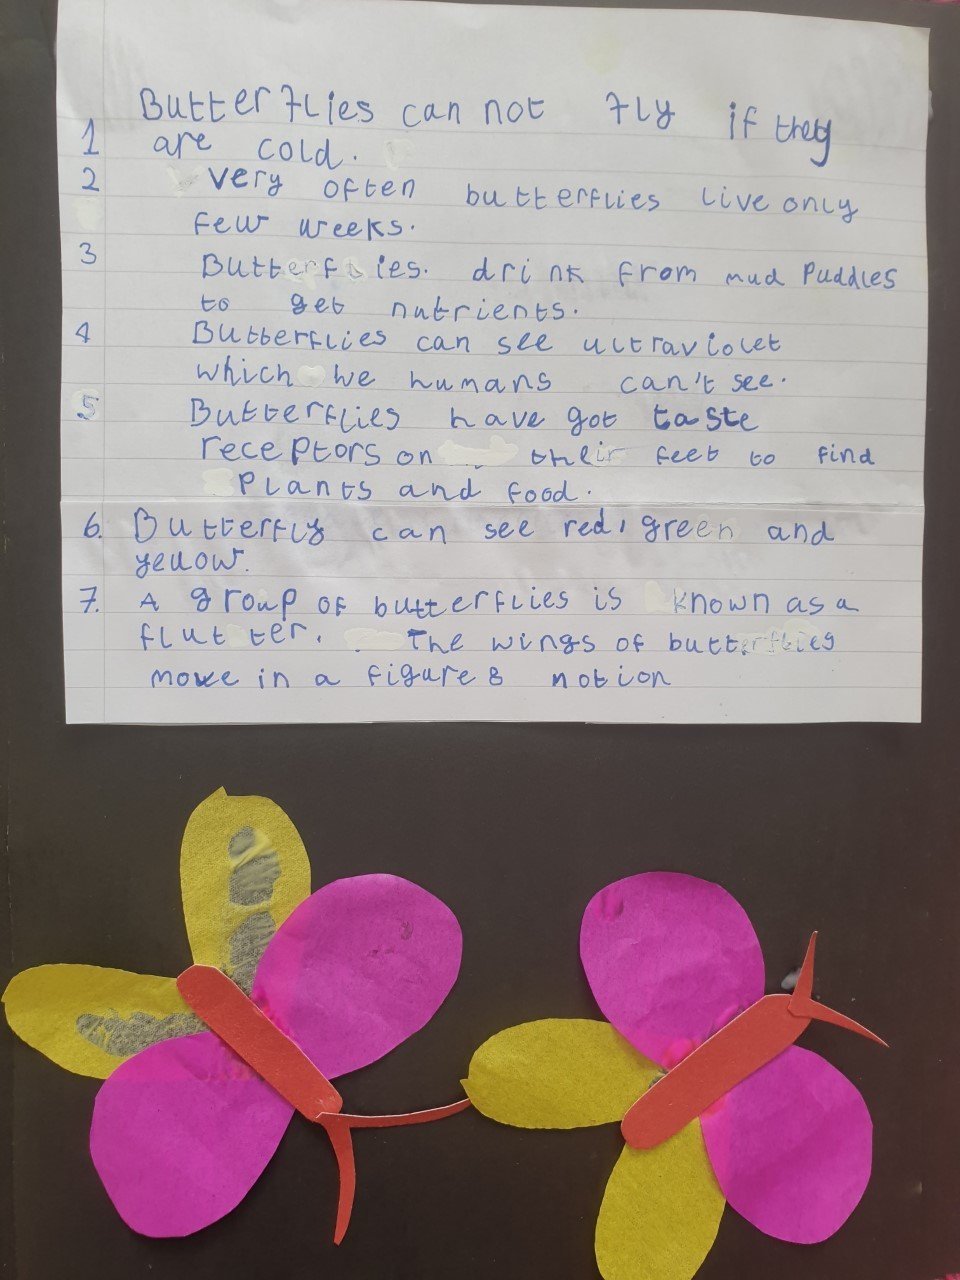 Butterflies can not fly if they
1 are cold.
2 very often butterflies live only
few weeks.
3 Butterflies. drink from mud Puddles
to get nutrients.
4 Butterflies can see ultraviolet
which we humans can't see.
5 Butterflies have got taste
receptors on their feet to find
Plants and food.
6. Butterfly can see red, green and
yellow.
7. A group of butterflies is known as a
flutter. The wings of butterflies
move in a figure 8 notion